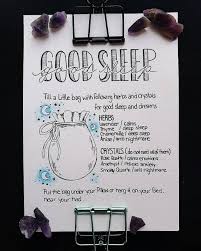 GOOD SLEEP
Fill a little bag with following herbs and crystals
for good sleep and dreams
HERBS
Lavender / calms
Thyme / deep sleep
Chamomile / calms
Anise / anti nightmare
CRYSTALS (do not need all of them)
Rose Quartz / calms emotions
Amethyst / relaxes anxiety
Smokey Quartz / anti nightmare
Put the bag under your Pillow or hang it on your bed,
near your head